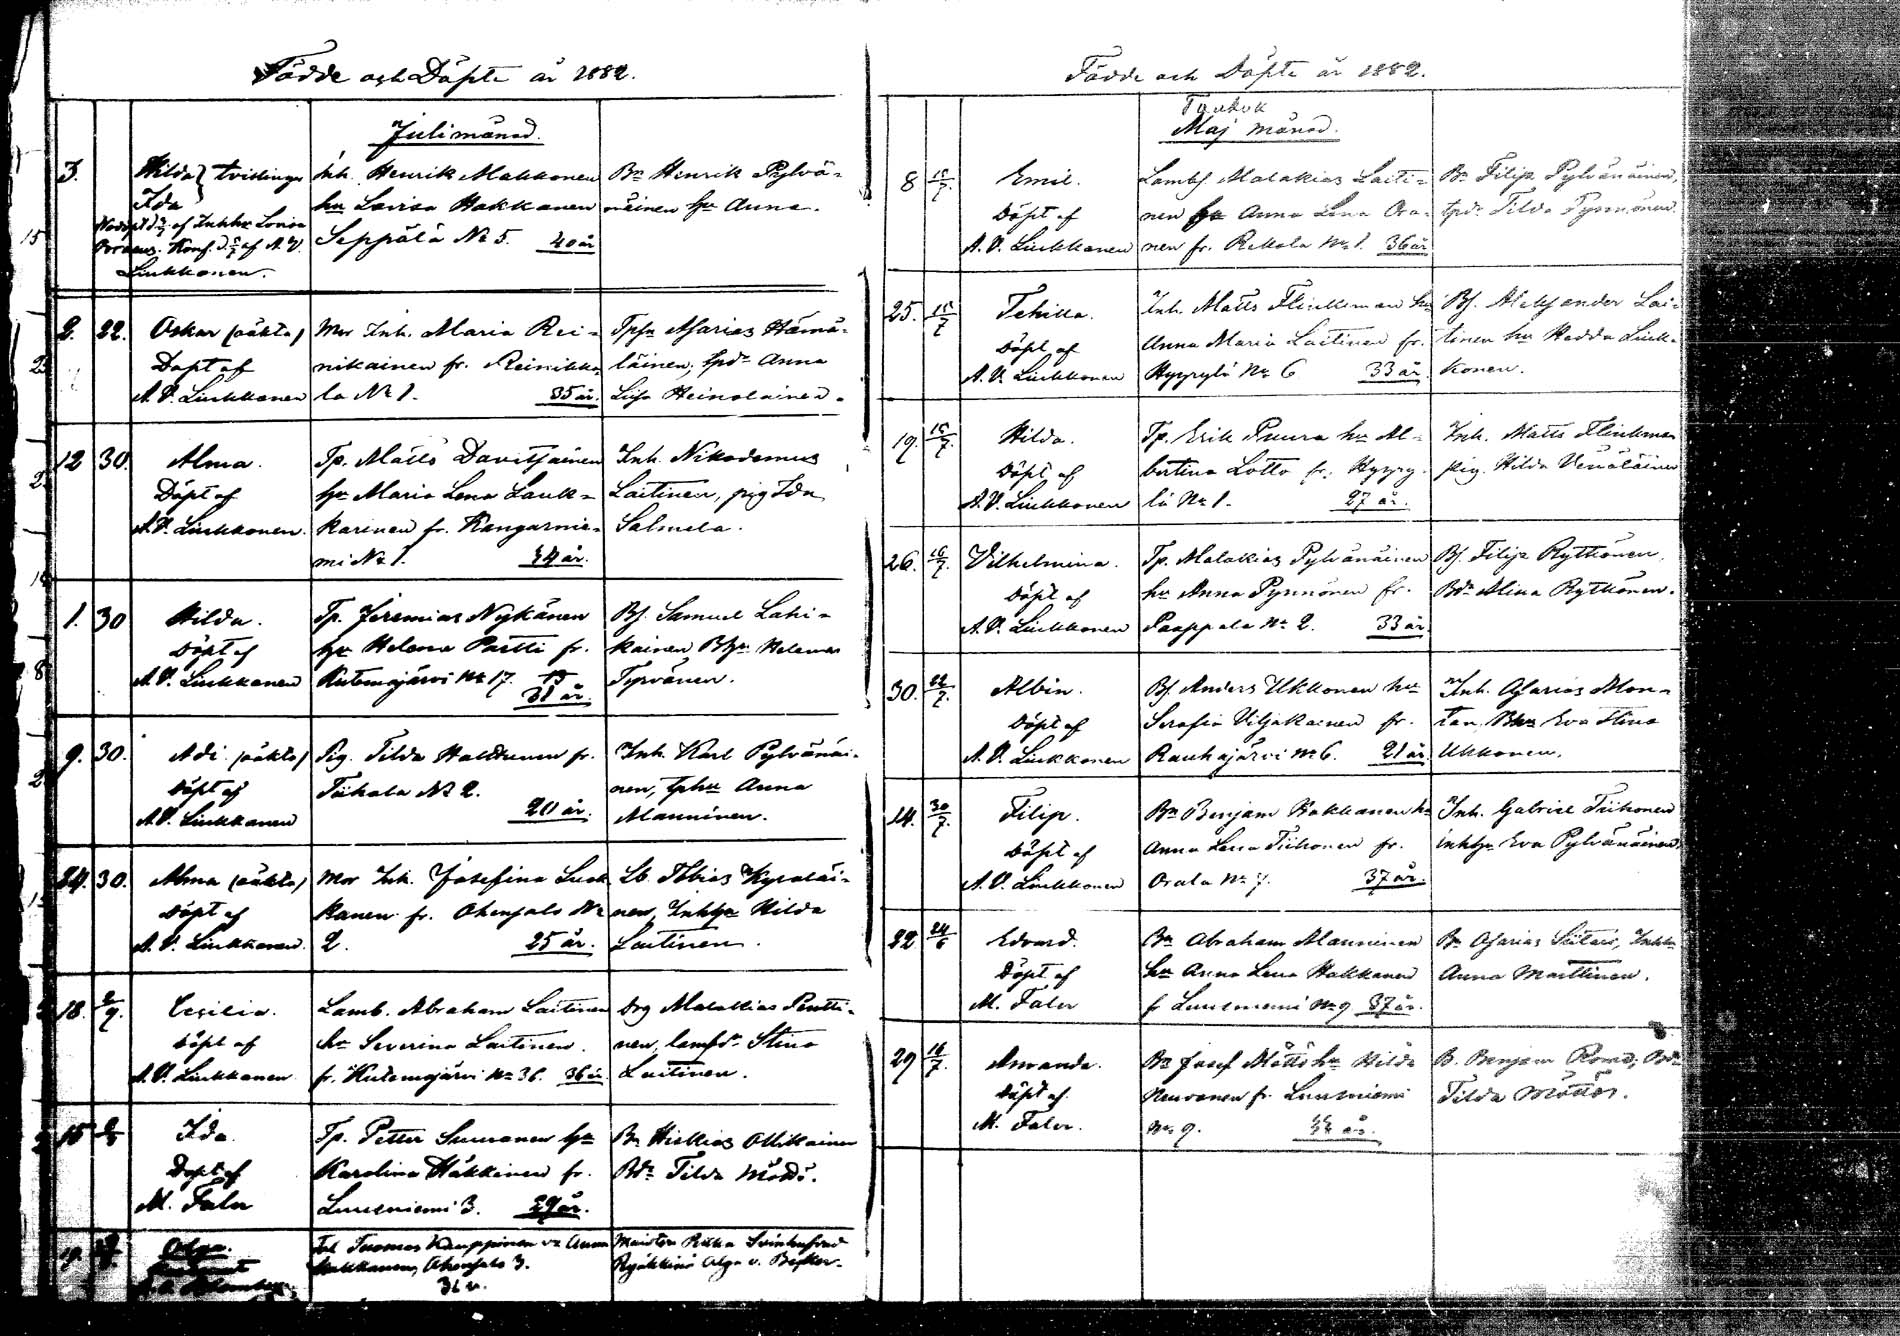 Födde och Döpte år 1882.
Juli månad.
3.
Hilda } tvillingar
Ida
Nöddöpt d. 3/7 af Inhhu Lovisa
Poraeus. Konf. d. 5/7 af A. V.
Liukkonen.
Inh. Henrik Makkonen
hu Lovisa Hakkanen
Seppälä No 5. 40 år
Bn Henrik Pylvä-
näinen hu Anna.
2. 22.
Oskar (oäkta)
Döpt af
A. V. Liukkonen
Mor Inh. Maria Rei-
nikainen fr. Reinikka
la No 1. 35 år.
Tpsn Asarias Hämä-
läinen, tpdr Anna
Liisa Heinolainen.
12 30.
Alma.
Döpt af
A. V. Liukkonen.
Tp. Matts Davitsainen
hu Maria Lena Lauk-
karinen fr. Kangasnie-
mi No 1. 34 år.
Inh. Nikodemus
Laitinen, pig Ida
Salmela.
1. 30
Hilda.
Döpt af
A. V. Liukkonen
Tp. Jeremias Nykänen
hu Helena Partti fr.
Kutemajärvi No 17.
31 år
Bs. Samuel Lahi-
kainen Bhu Helena
Tyrvänen.
9. 30.
Adi (oäkta)
Döpt af
A. V. Liukkonen
Pig. Tilda Halttunen fr.
Tiihola No 2.
20 år.
Inh. Karl Pylvänäi-
nen, tphu Anna
Manninen.
24. 30.
Alma (oäkta)
Döpt af
A. V. Liukkonen.
Mor Inh. Josefina Luuk
kanen fr. Ohensalo No
2. 25 år.
Lb. Tobias Kyrolai-
nen, Inhhu Hilda
Laitinen.
18. 2/9.
Cecilia.
Döpt af
A. V. Liukkonen
Lamb. Abraham Laitinen
hu Severina Laitinen.
fr. Kutemajärvi No 36. 36 år
Drg Malakias Pentti-
nen, lambdr Stina
Laitinen.
15
Ida.
Döpt af
M. Faler
Tp. Petter Suuronen hu
Karolina Häkkinen fr.
Luusniemi 3. 29 år.
Bn Hiskias Ollikainen
Bdr Tilda Möttö.
19.
Olga.
Inh Tuomas Kauppinen vo Anna
Hakkanen, Ohensalo 3.
31 v.
Ryökkinä Olga v. Becker.
Födde och Döpte år 1882.
Maj månad.
8 15/7.
Emil.
Döpt af
A. V. Liukkonen
Lambs. Malakias Laiti-
nen hu Anna Lena Ora-
nen fr. Rekola No 1. 36 år
Bn Filip Pylvänäinen,
tpdr Tilda Pynnönen
25. 15/7
Tehilla.
Döpt af
A. V. Liukkonen
Inh. Matts Flinkman hu
Anna Maria Laitinen fr.
Hyyrylä No 6 33 år.
Bs. Aleksander Lai-
tinen hu Hedda Liuk-
konen.
19. 15/7.
Hilda.
Döpt af
A. V. Liukkonen
Tp. Erik Puura hu Al-
bertina Lotto fr. Hyyry-
lä No 1. 27 år.
Inh. Matts Flinkman
pig. Hilda Venäläinen
26. 16/7.
Vilhelmina.
Döpt af
A. V. Liukkonen
Tp. Malakias Pylvänäinen
hu Anna Pynnönen fr.
Paappala No 2. 33 år.
Bs. Filip Rytkönen.
Bdr Alina Rytkönen.
30. 22/7.
Albin.
Döpt af
A. V. Liukkonen
Bs. Anders Ukkonen hu
Serafia Viljakainen fr.
Rauhajärvi No 6. 21 år
Inh. Asarias Mon-
ton Bhu Eva Stina
Ukkonen.
14. 30/7.
Filip.
Döpt af
A. V. Liukkonen
Bn Benjam Hakkanen hu
Anna Lena Tiihonen fr.
Orala No 7. 37 år.
Inh. Gabriel Tiihonen
inhhu Eva Pylvänäinen.
22 24/6
Edvard.
Döpt af
M. Faler
Bn Abraham Manninen
hu Anna Lena Hakkanen
fr Luusniemi No 9 37 år.
Bn Asarias Siitari, Inhhu
Anna Marttinen.
29 16/7.
Amanda.
Döpt af
M. Faler.
Bn Josef Möttö hu Hilda
Neuvonen fr. Luusniemi
No 9. 44 år.
B. Benjam
Tilda Möttö.